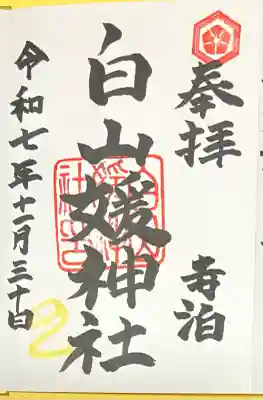 奉拝
寺泊
白山媛神社
令和七年十一月三十日